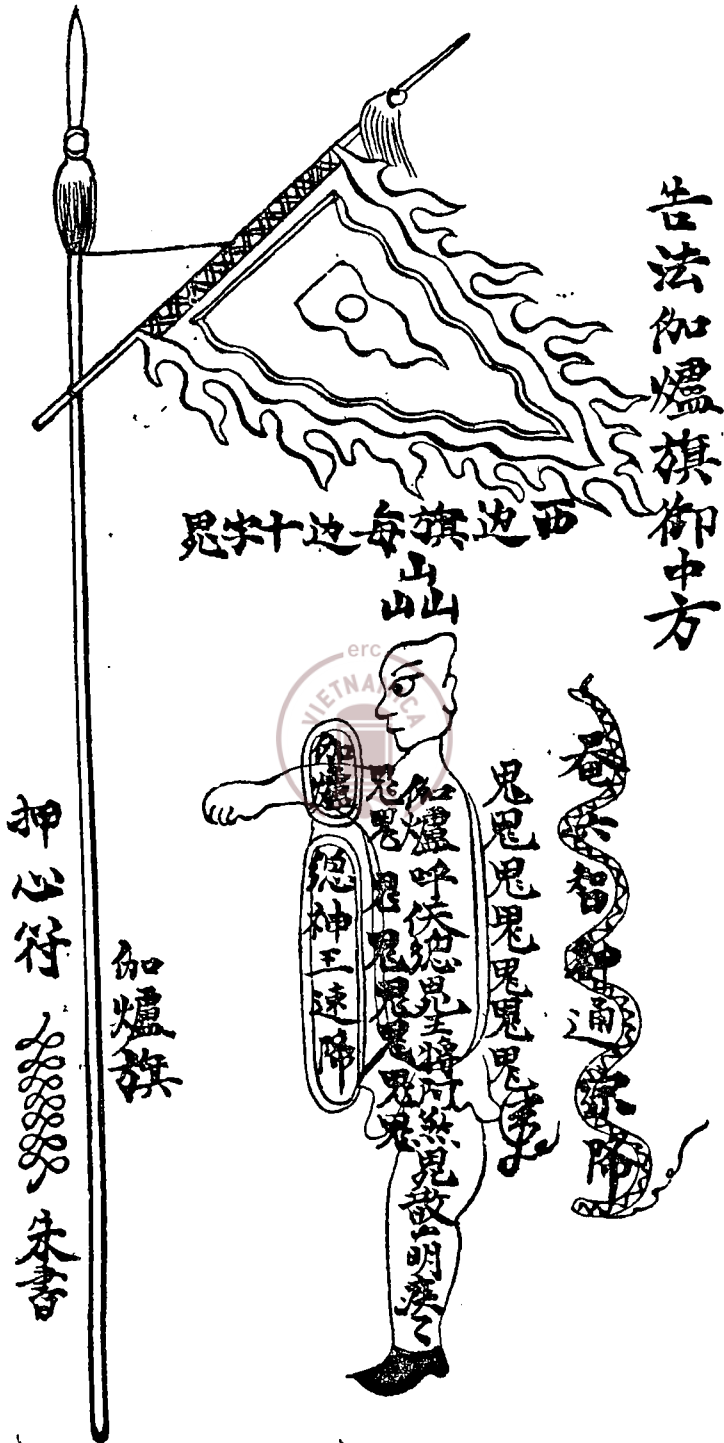 告法伽爐旗御中方
西边旗每边十字鬼
山山山
奄六智神通降
鬼鬼鬼鬼鬼鬼鬼
伽爐呼總鬼王將阿煞鬼散明
鬼鬼鬼鬼鬼鬼鬼鬼
伽爐
總神王速降
伽爐旗
押心符 朱書
erc
VIETNAMICA